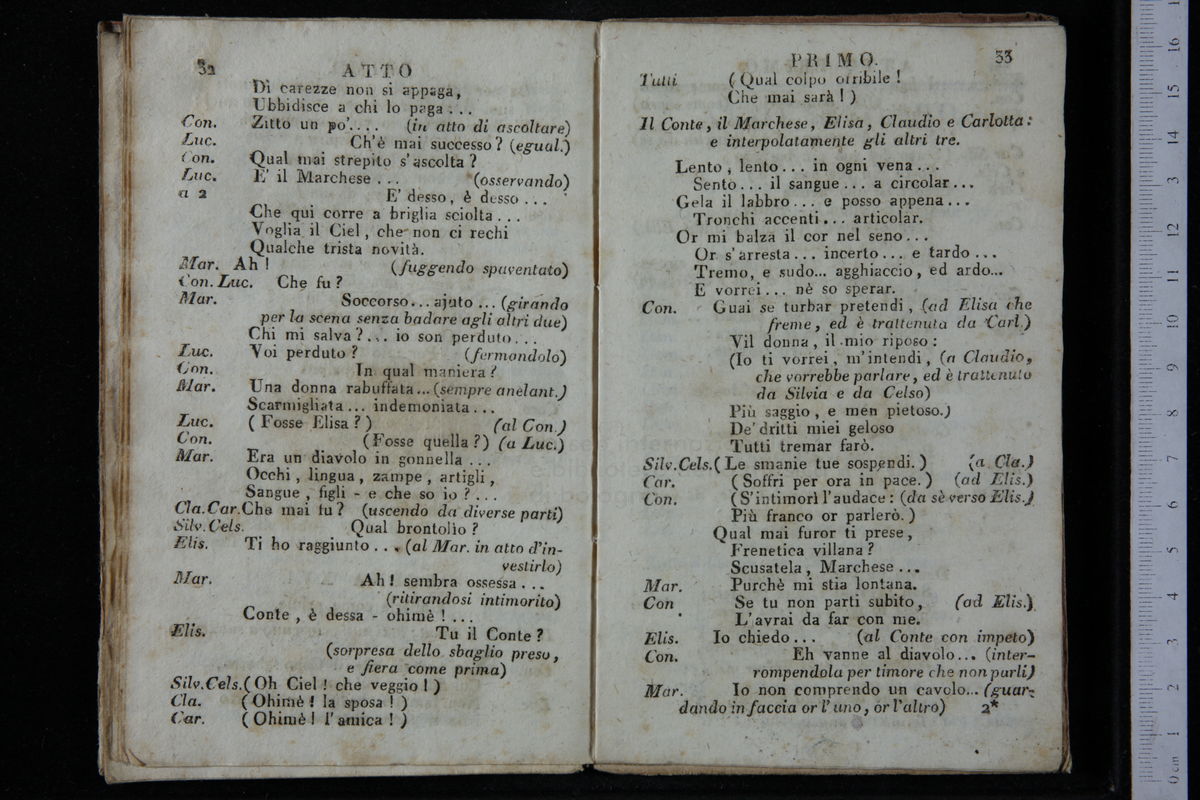 32
ATTO
Di carezze non si appaga,
Ubbidisce a chi lo paga ...
Con. Zitto un po'.... (in atto di ascoltare)
Luc. Ch'è mai successo? (egual.)
Con. Qual mai strepito s'ascolta?
Luc. E' il Marchese ... (osservando)
a 2 E' desso, è desso ...
Che qui corre a briglia sciolta ...
Voglia il Ciel, che non ci rechi
Qualche trista novità.
Mar. Ah! (fuggendo spaventato)
Con. Luc. Che fu?
Mar. Soccorso... ajuto ... (girando
per la scena senza badare agli altri due)
Chi mi salva?... io son perduto...
Luc. Voi perduto? (fermandolo)
Con. In qual maniera?
Mar. Una donna rabuffata... (sempre anelant.)
Scarmigliata ... indemoniata ...
Luc. (Fosse Elisa?) (al Con.)
Con. (Fosse quella?) (a Luc.)
Mar. Era un diavolo in gonnella ...
Occhi, lingua, zampe, artigli,
Sangue, figli - e che so io? ...
Cla. Car. Che mai fu? (uscendo da diverse parti)
Silv. Cels. Qual brontolìo?
Elis. Ti ho raggiunto ... (al Mar. in atto d'in-
vestirlo)
Mar. Ah! sembra ossessa ...
(ritirandosi intimorito)
Conte, è dessa - ohimè! ...
Elis. Tu il Conte?
(sorpresa dello sbaglio preso,
e fiera come prima)
Silv. Cels. (Oh Ciel! che veggio!)
Cla. (Ohimè! la sposa!)
Car. (Ohimè! l'amica!)
PRIMO.
33
Tutti (Qual colpo orribile!
Che mai sarà!)
Il Conte, il Marchese, Elisa, Claudio e Carlotta:
e interpolatamente gli altri tre.
Lento, lento... in ogni vena...
Sento... il sangue... a circolar...
Gela il labbro... e posso appena...
Tronchi accenti... articolar.
Or mi balza il cor nel seno...
Or s'arresta... incerto... e tardo ...
Tremo, e sudo... agghiaccio, ed ardo...
E vorrei... nè so sperar.
Con. Guai se turbar pretendi, (ad Elisa che
freme, ed è trattenuta da Carl.)
Vil donna, il mio riposo:
(Io ti vorrei, m'intendi, (a Claudio,
che vorrebbe parlare, ed è trattenuto
da Silvia e da Celso)
Più saggio, e men pietoso.)
De' dritti miei geloso
Tutti tremar farò.
Silv. Cels. (Le smanie tue sospendi.) (a Cla.)
Car. (Soffri per ora in pace.) (ad Elis.)
Con. (S'intimorì l'audace: (da sè verso Elis.)
Più franco or parlerò.)
Qual mai furor ti prese,
Frenetica villana?
Scusatela, Marchese...
Mar. Purchè mi stia lontana.
Con. Se tu non parti subito, (ad Elis.)
L'avrai da far con me.
Elis. Io chiedo... (al Conte con impeto)
Con. Eh vanne al diavolo... (inter-
rompendola per timore che non parli)
Mar. Io non comprendo un cavolo... (guar-
dando in faccia or l'uno, or l'altro) 2*